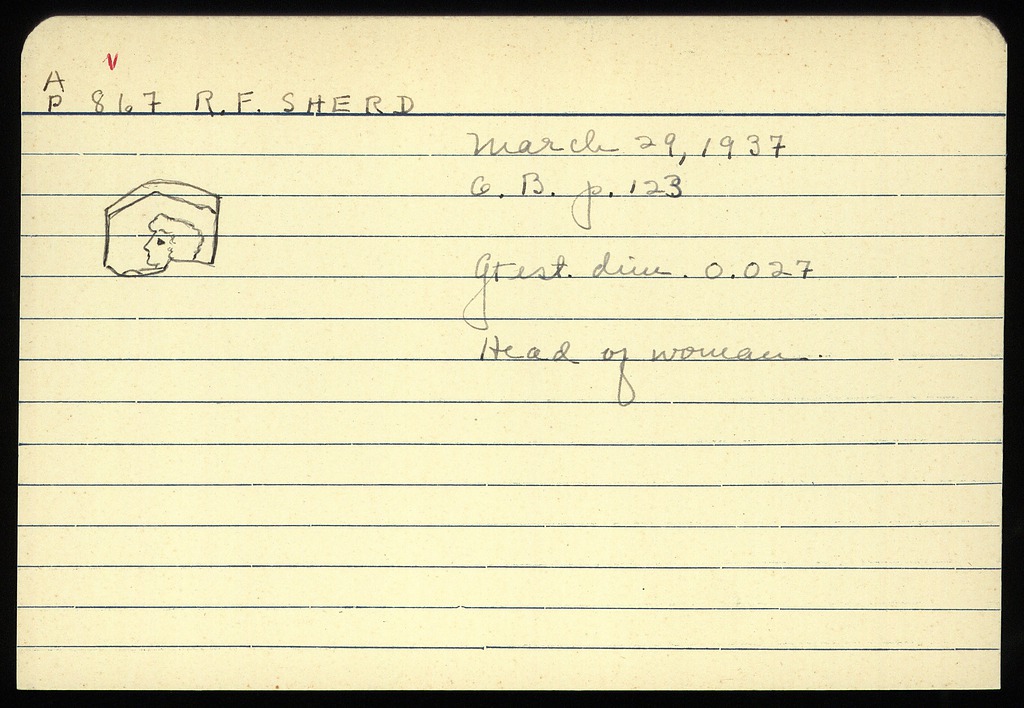 V
A
P 867 R.F. SHERD
March 29, 1937
G. B. p. 123
Gtest. dim. 0.027
Head of woman.